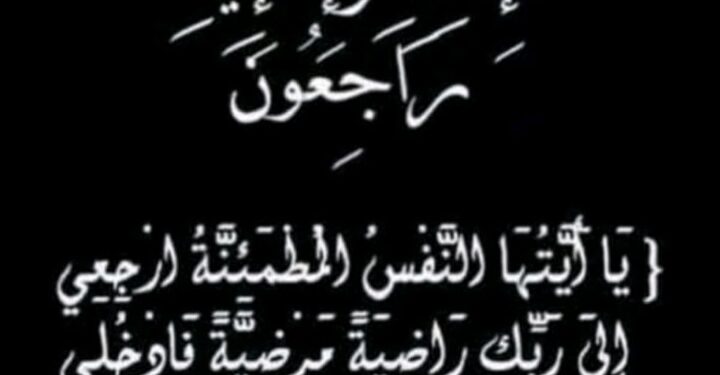 رَاجَعُونَ
{ يَا أَيَّتُهَا النَّفْسُ الْمُطْمَئِنَّةُ ارْجِعِي
إِلَى رَبِّكِ رَاضِيَةً مَرْضِيَّةً فَادْخُلِي